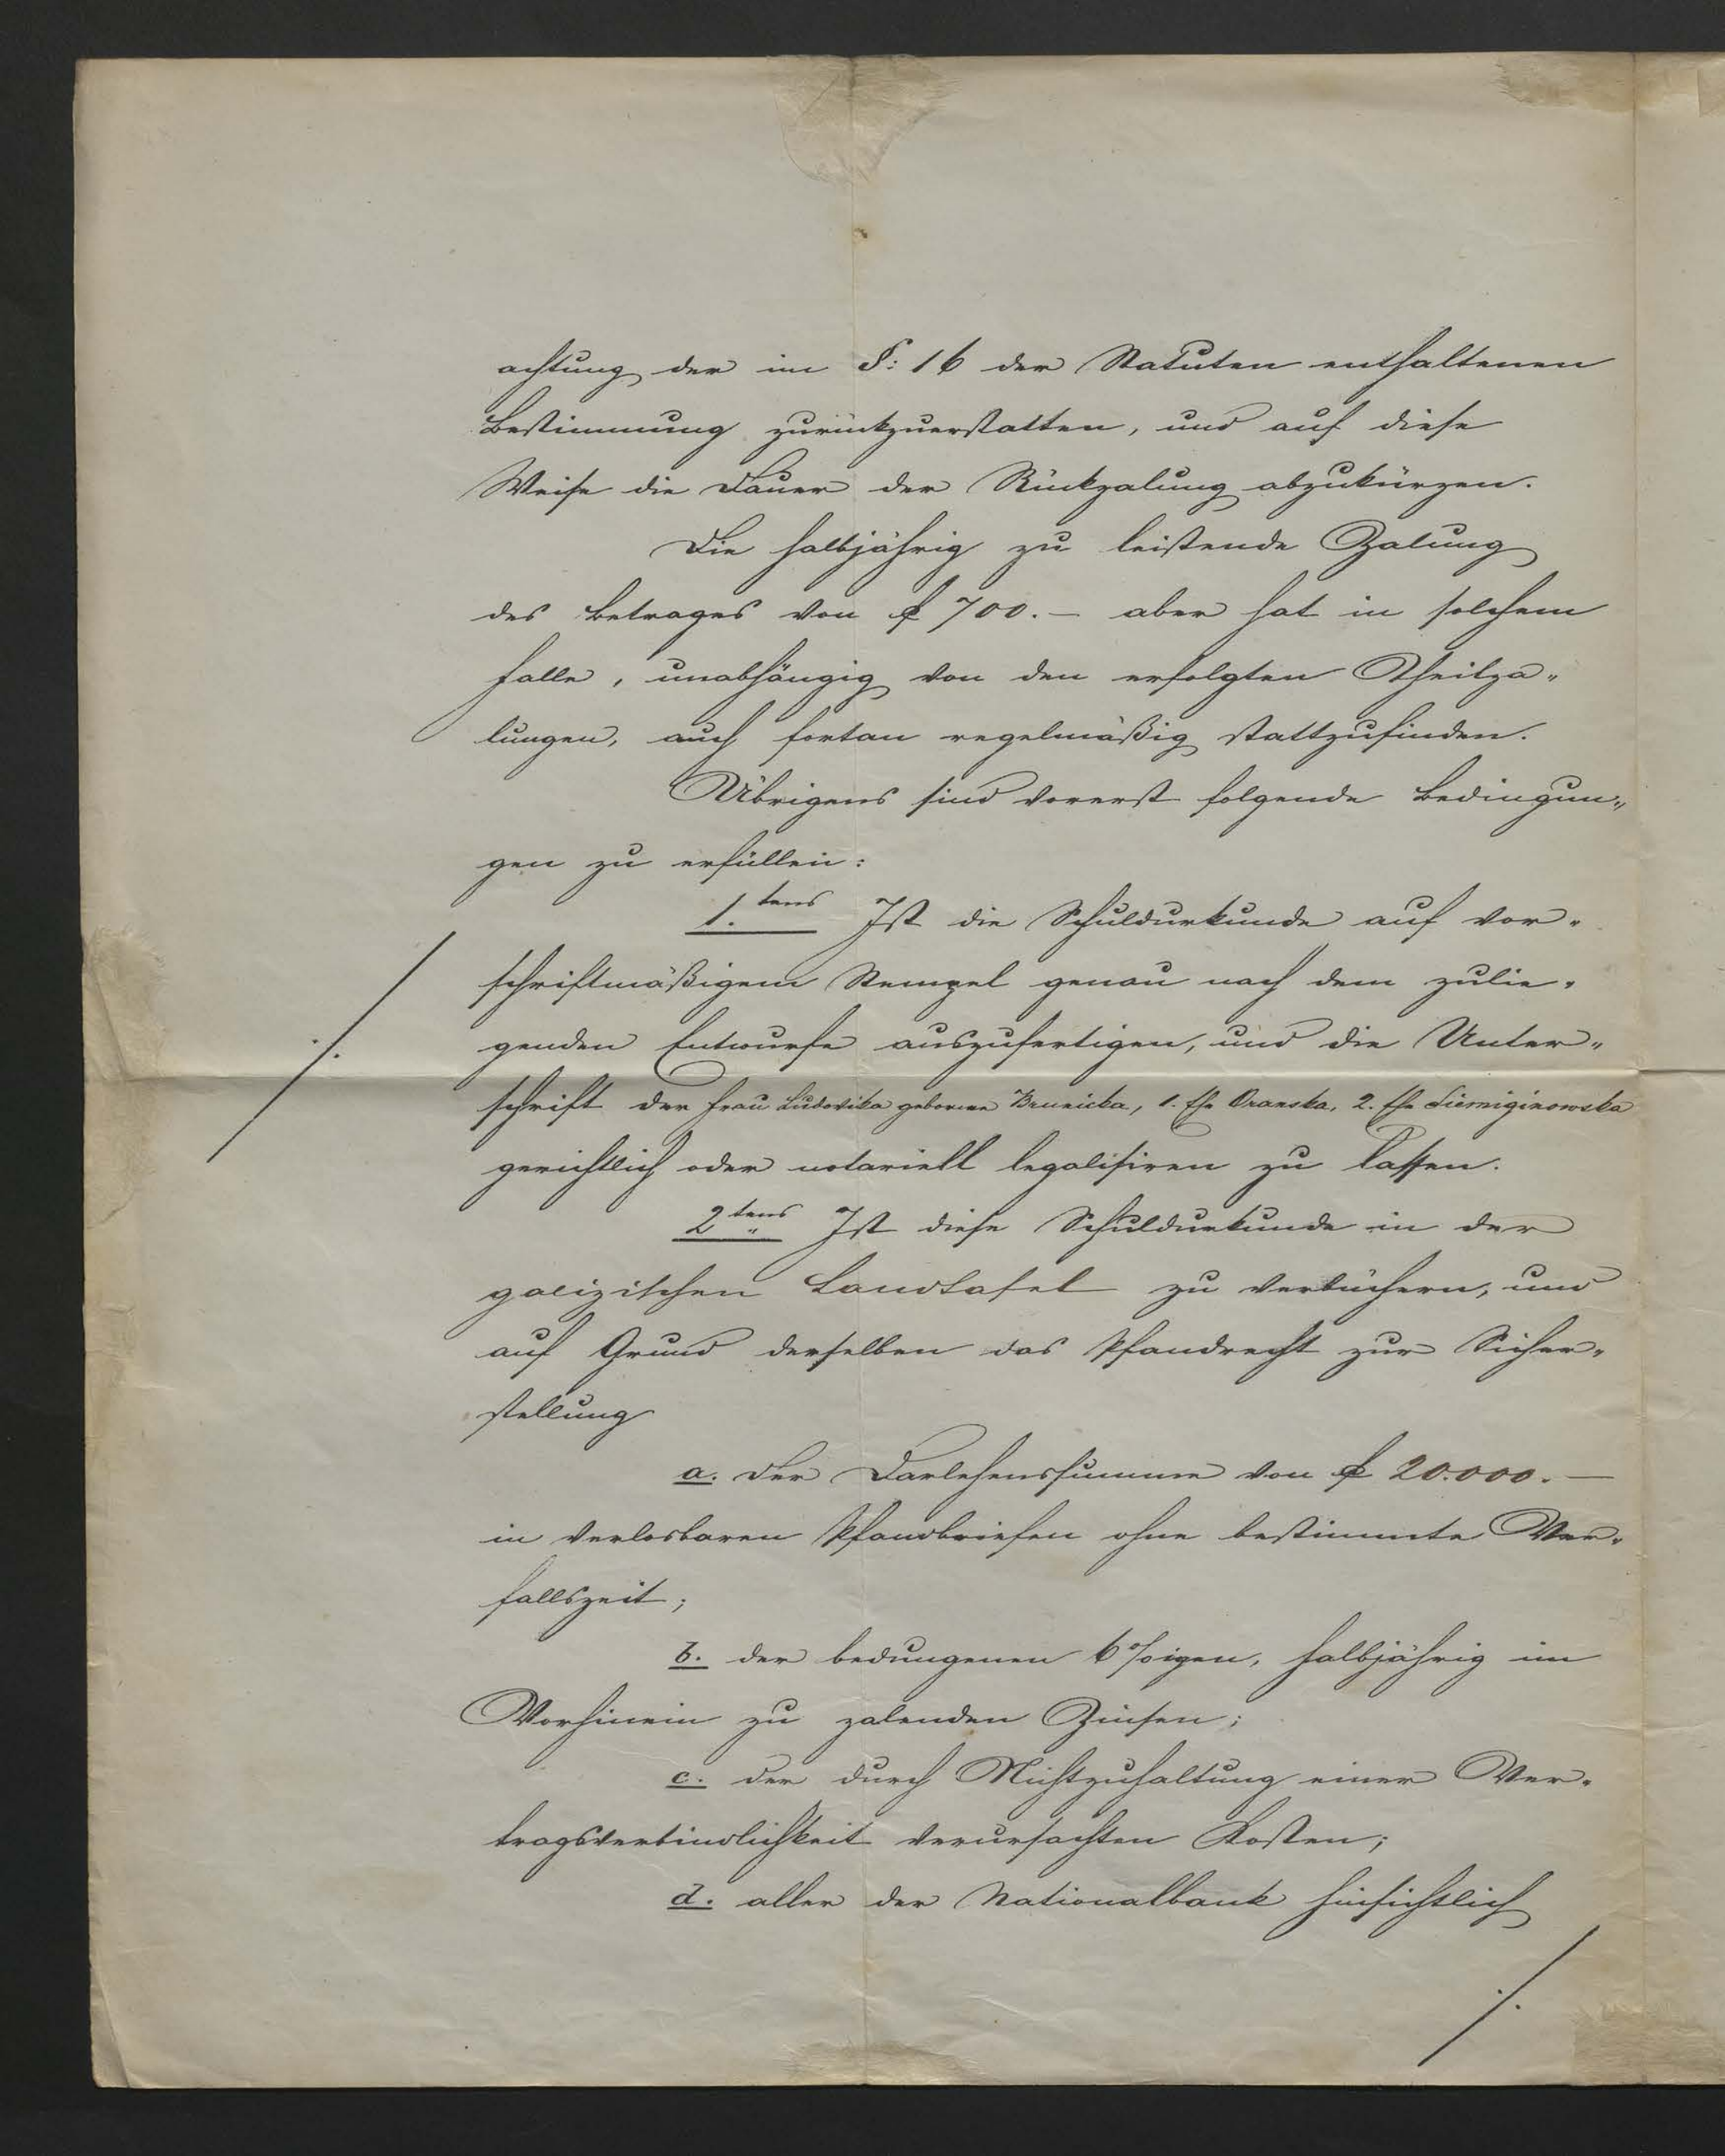 achtung der im §: 16 der Statuten enthaltenen
Bestimmung zurückzuerstatten, und auf diese
Weise die Dauer der Rückzalung abzukürzen.
Die halbjährig zu leistende Zalung
des Betrages von f 700.— aber hat in solchem
Falle, unabhängig von den erfolgten Theilza„
lungen, auch fortan regelmäßig stattzufinden.
Übrigens sind vorerst folgende Bedingun„
gen zu erfüllen:
1.tens Ist die Schuldurkunde auf vor„
schriftmäßigem Stempel genau nach dem zulie„
genden Entwurfe auszufertigen, und die Unter„
./.
schrift der Frau Ludovika geborene Brunicka, 1. Ehe Oranska, 2. Ehe Siemiginowska
gerichtlich oder notariell legalisiren zu lassen.
2tens Ist diese Schuldurkunde in der
galizischen Landtafel zu verbüchern, und
auf Grund derselben das Pfandrecht zur Sicher„
stellung
a. der Darlehenssumme von f 20.000.—
in verlosbaren Pfandbriefen ohne bestimmte Ver„
fallszeit;
b. der bedungenen 6%igen, halbjährig im
Vorhinein zu zalenden Zinsen;
c. der durch Nichtzuhaltung einer Ver„
tragsverbindlichkeit verursachten Kosten;
d. aller der Nationalbank hinsichtlich
./.